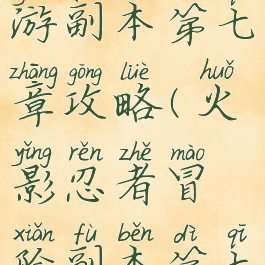 游副本第七
zhāng gōng lüè huǒ
章攻略(火
yǐng rěn zhě mào
影忍者冒
xiǎn fù běn dì qī
险副本第七